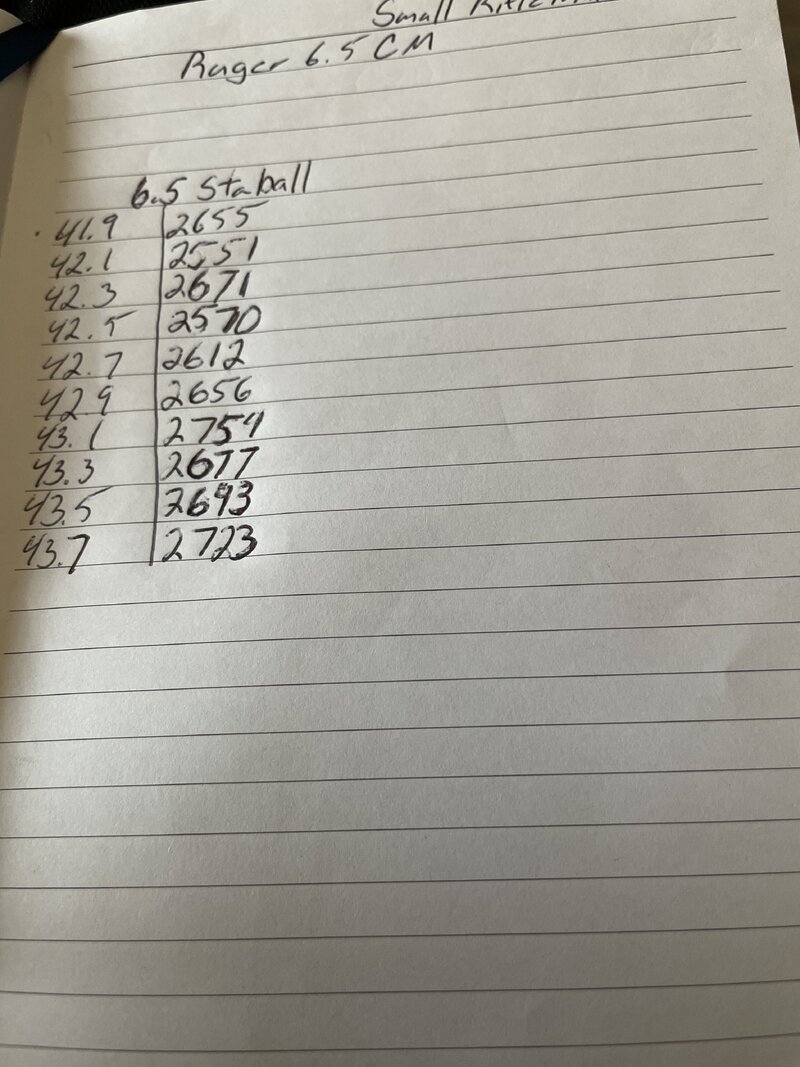 Small Rifle
Ruger 6.5 CM
6.5 Staball
41.9 2655
42.1 2551
42.3 2671
42.5 2570
42.7 2612
42.9 2656
43.1 2754
43.3 2677
43.5 2693
43.7 2723